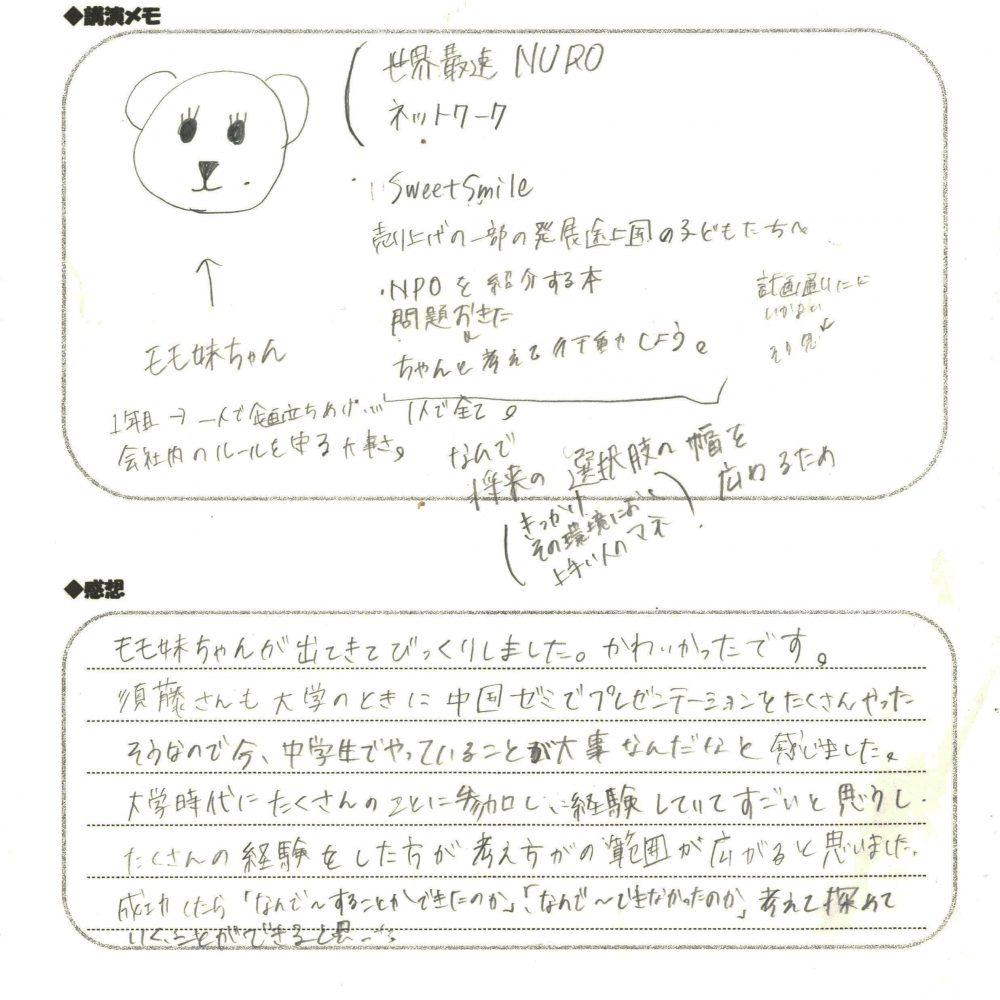 ◆講演メモ
世界最速 NURO
ネットワーク
SweetSmile
売り上げの一部の発展途上国の子どもたちへ
・NPOを紹介する本
問題おきた
ちゃんと考えて行動しよう。
計画通りに
いかない
モモ妹ちゃん
1年目→一人で企画立ちあげ… 1人で全て。
会社内のルールを守る大事さ。
なんで
将来の選択肢の幅を
広げるため
きっかけ
その環境に
上手い人のマネ
◆感想
モモ妹ちゃんが出てきてびっくりしました。かわいかったです。
須藤さんも大学のときに中国ゼミでプレゼンテーションをたくさんやった
そうなので今、中学生でやっていることが大事なんだなと感じました。
大学時代にたくさんのことに参加し、経験していてすごいと思うし、
たくさんの経験をした方が考え方がの範囲が広がると思いました。
成功したら「なんで〜することができたのか」、「なんで〜できなかったのか」考えて深めて
いくことができると思った。